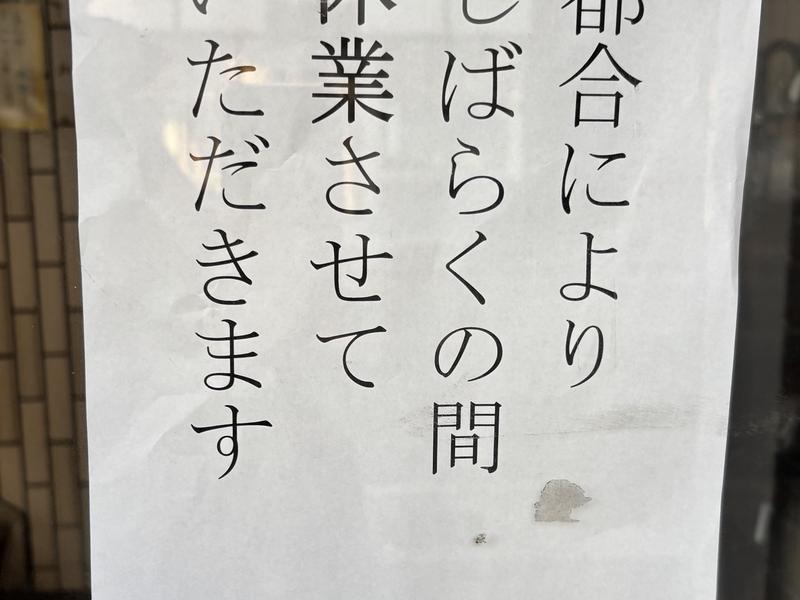 都合により
しばらくの間
休業させて
いただきます